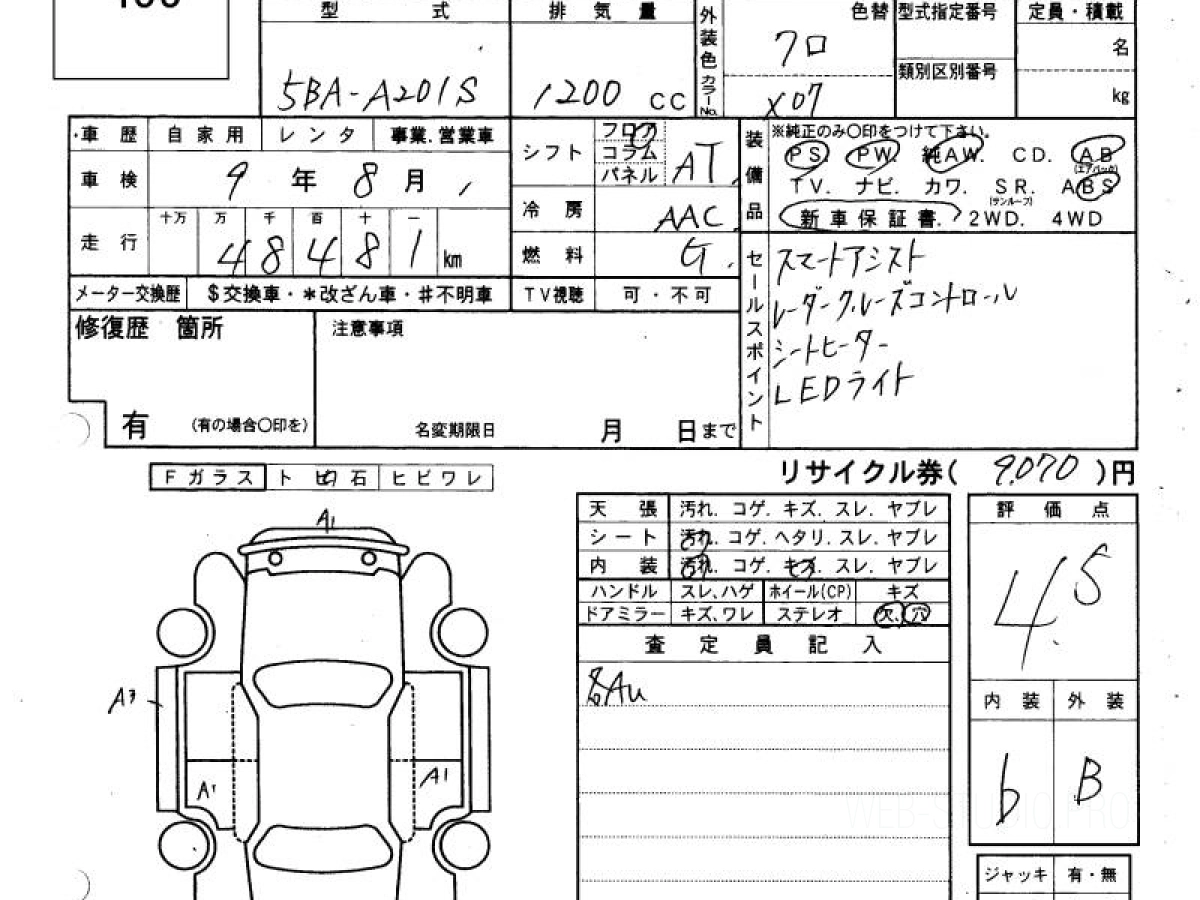 型 式 排 気 量 外装色 カラーNo. 色替 型式指定番号 定員・積載
フロ 名
類別区別番号
5BA-A201S 1200 CC X07 kg
車 歴 自 家 用 レ ン タ 事業.営業車 シフト フロア コラム パネル AT 装備品 ※純正のみ〇印をつけて下さい。
PS. PW. 純AW. CD. AB
(エアバック)
車 検 9 年 8 月 TV. ナビ. カワ. SR. ABS
(サンルーフ)
冷 房 AAC 新車保証書. 2WD. 4WD
十万 万 千 百 十 一
走 行 4 8 4 8 1 km 燃 料 G セールスポイント スマートアシスト
メーター交換歴 $交換車・*改ざん車・#不明車 TV視聴 可・不可 レーダークルーズコントロール
修復歴 箇所 注意事項 シートヒーター
LEDライト
有 (有の場合〇印を) 名変期限日 月 日まで
Fガラス ト ビ 石 ヒビワレ リサイクル券( 9,070 )円
天 張 汚れ. コゲ. キズ. スレ. ヤブレ 評 価 点
A1
シート 汚れ. コゲ. ヘタリ. スレ. ヤブレ
内 装 汚れ. コゲ. キズ. スレ. ヤブレ 4.5
ハンドル スレ、ハゲ ホイール(CP) キズ
ドアミラー キズ、ワレ ステレオ 欠.穴
査 定 員 記 入
各AU
A3 内 装 外 装
A1 A1 b B
WEB-STUDIO PRO
ジャッキ 有・無